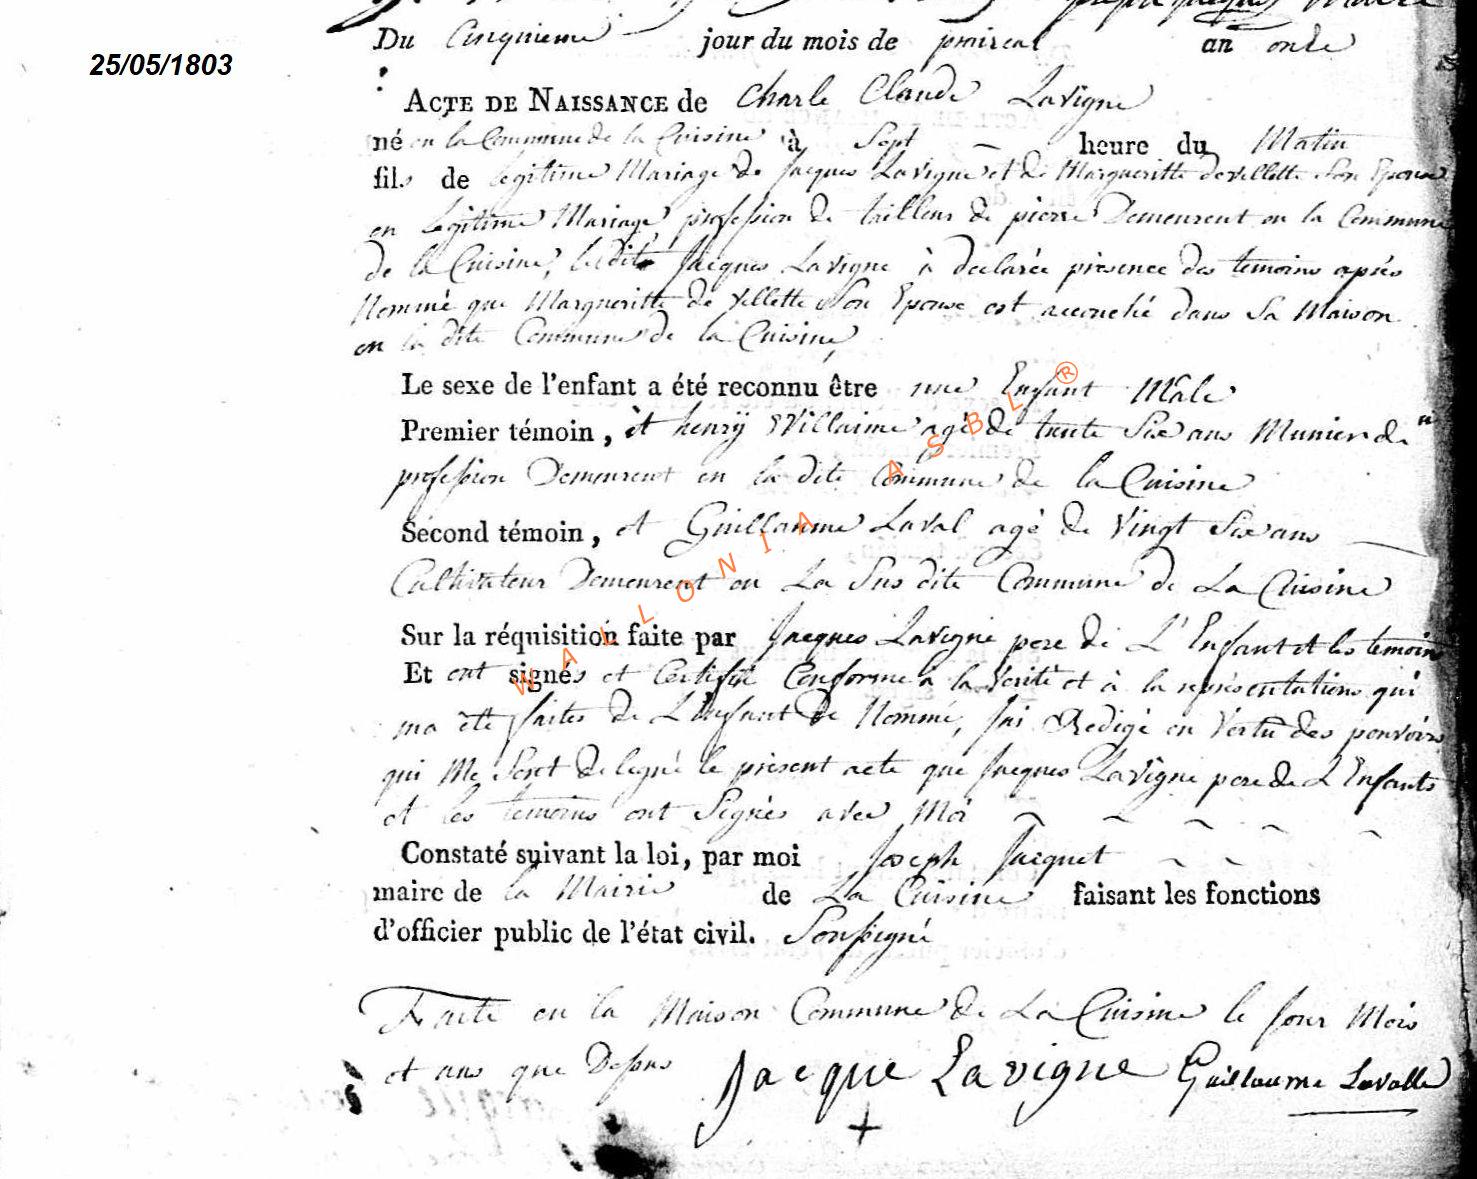 25/05/1803
Du Cinquieme jour du mois de praireal an onze
ACTE DE NAISSANCE de Charle Claude Lavigne
né en la Commune de la Cuisine à Sept heure du Matin
fils de legitime Mariage de Jacques Lavigne et de Margueritte devillette Son Epouse
en legitime Mariage, profession de tailleur de pierre Demeurent en la Commune
de la Cuisine, le dit Jacques Lavigne à declarée présence des temoins après
Nommé que Margueritte de villette Son Epouse est accouché dans Sa Maison
en la dite Commune de la Cuisine,
Le sexe de l'enfant a été reconnu être une Enfant Mâle
Premier témoin, et henrÿ Villaime agé de trente Six ans Munier de
profession Demeurent en la dite Commune de la Cuisine
Second témoin, et Guillaume Laval agé de Vingt Six ans
Cultivateur Demeurent en La Sus dite Commune de La Cuisine
Sur la réquisition faite par Jacques Lavigne pere de L'Enfant et les temoins
Et ont signés et Certifié Conforme à la Verité et à la représentations qui
ma été faites de L'Enfant de Nommé, J'ai Redigé en Vertu des pouvoirs
qui Me Sont delegué le présent acte que Jacques Lavigne pere de L Enfants
et les temoins ont Signés avec Moi
Constaté suivant la loi, par moi Joseph Jacquet
maire de la Mairie de La Cuisine faisant les fonctions
d'officier public de l'état civil. Soussigné
Faite en la Maison Commune de La Cuisine le Jour Mois
et ans que Dessus Jacque Lavigne Guillaume Lavalle
+
WALLONIA ASBL ®